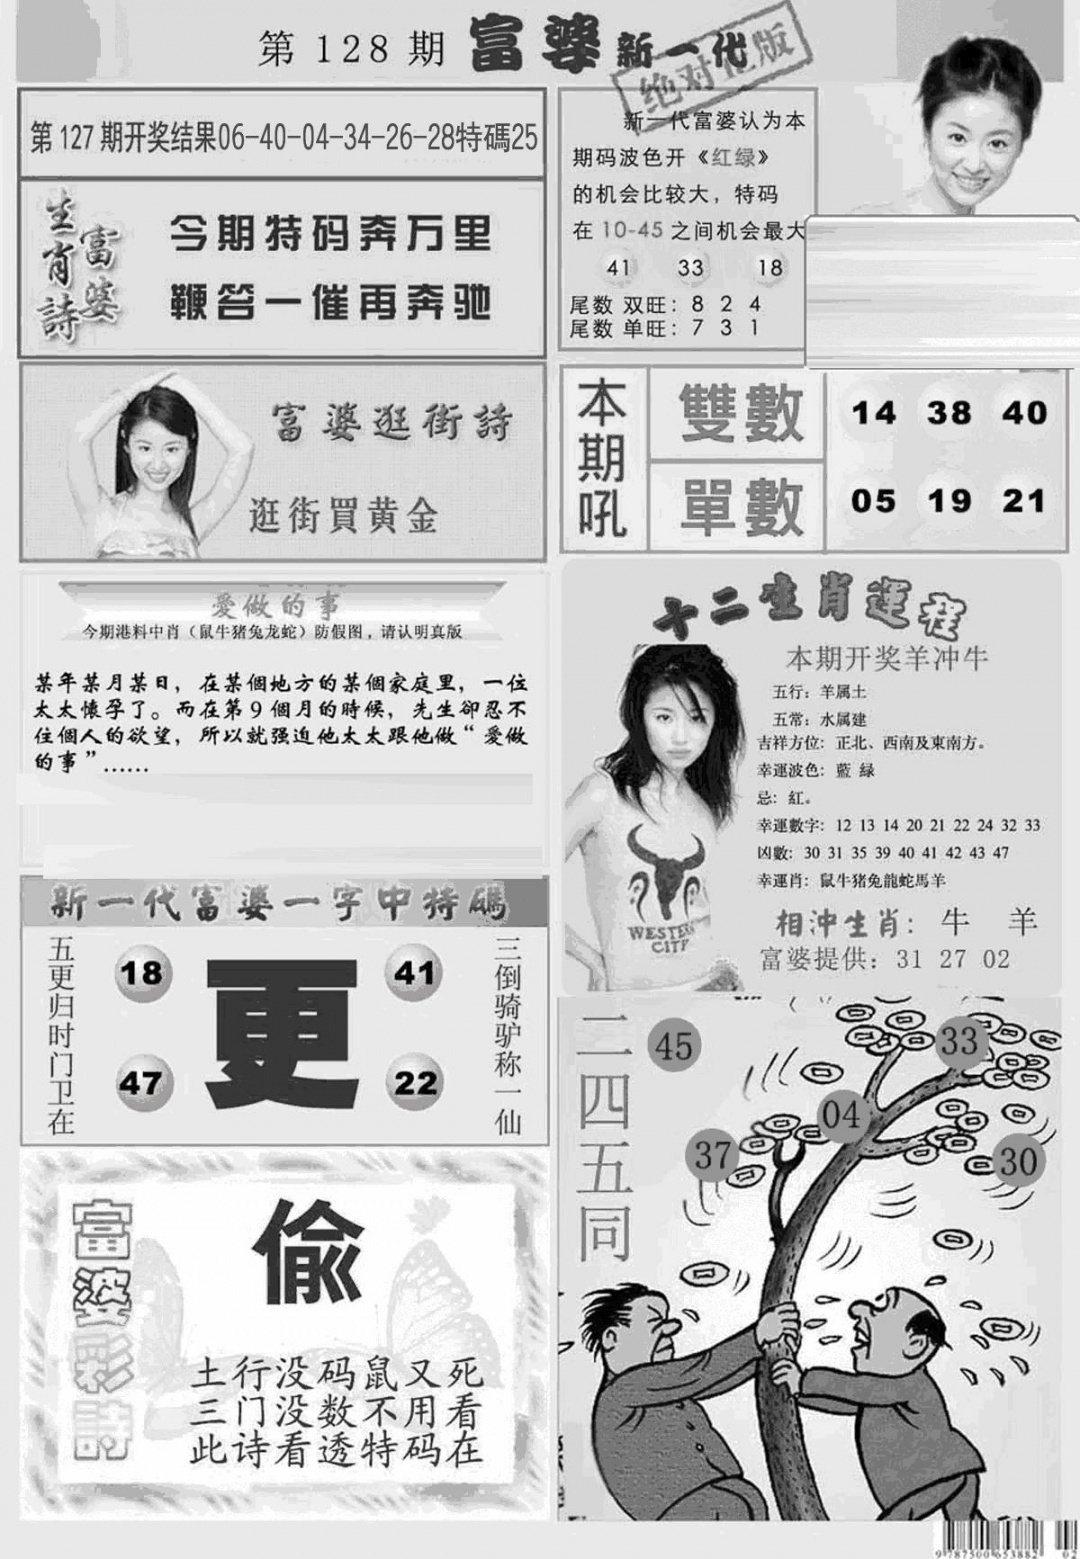 第128期 富婆 新一代
绝对正版
第127期开奖结果06-40-04-34-26-28特碼25
生肖詩
富婆
今期特码奔万里
鞭答一催再奔驰
新一代富婆认为本
期码波色开《红绿》
的机会比较大，特码
在10-45之间机会最大
41 33 18
尾数 双旺：8 2 4
尾数 单旺：7 3 1
富婆逛街詩
逛街買黄金
本期吼
雙數 14 38 40
單數 05 19 21
愛做的事
今期港料中肖（鼠牛猪兔龙蛇）防假图，请认明真版
某年某月某日，在某個地方的某個家庭里，一位
太太懷孕了。而在第9個月的時候，先生卻忍不
住個人的欲望，所以就强迫他太太跟他做“愛做
的事”......
十二生肖運程
本期开奖羊冲牛
五行：羊属土
五常：水属建
吉祥方位：正北、西南及東南方。
幸運波色：藍 緑
忌：紅。
幸運數字：12 13 14 20 21 22 24 32 33
凶數：30 31 35 39 40 41 42 43 47
幸運肖：鼠牛猪兔龍蛇馬羊
相沖生肖：牛 羊
富婆提供：31 27 02
WESTE
CITY
新一代富婆一字中特碼
五更归时门卫在
18 41
更
47 22
三倒骑驴称一仙
富婆彩詩
偷
土行没码鼠又死
三门没数不用看
此诗看透特码在
二四五同
45
33
04
37
30
9787500653882 02